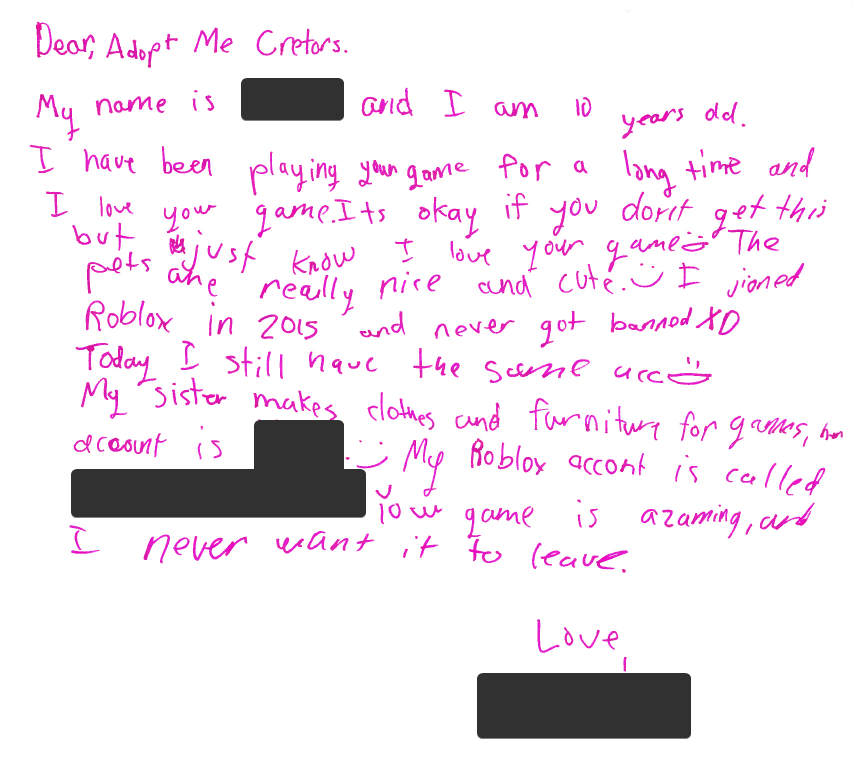 Dear, Adopt Me Cretors.
My name is and I am 10 years old.
I have been playing your game for a long time and
I love your game. Its okay if you don't get this
but just know I love your game The
pets are really nice and cute. I jioned
Roblox in 2015 and never got banned XD
Today I still have the same acc
My sister makes clothes and furniture for games, her
account is . My Roblox accont is called
Your game is azaming, and
I never want it to leave.
Love,